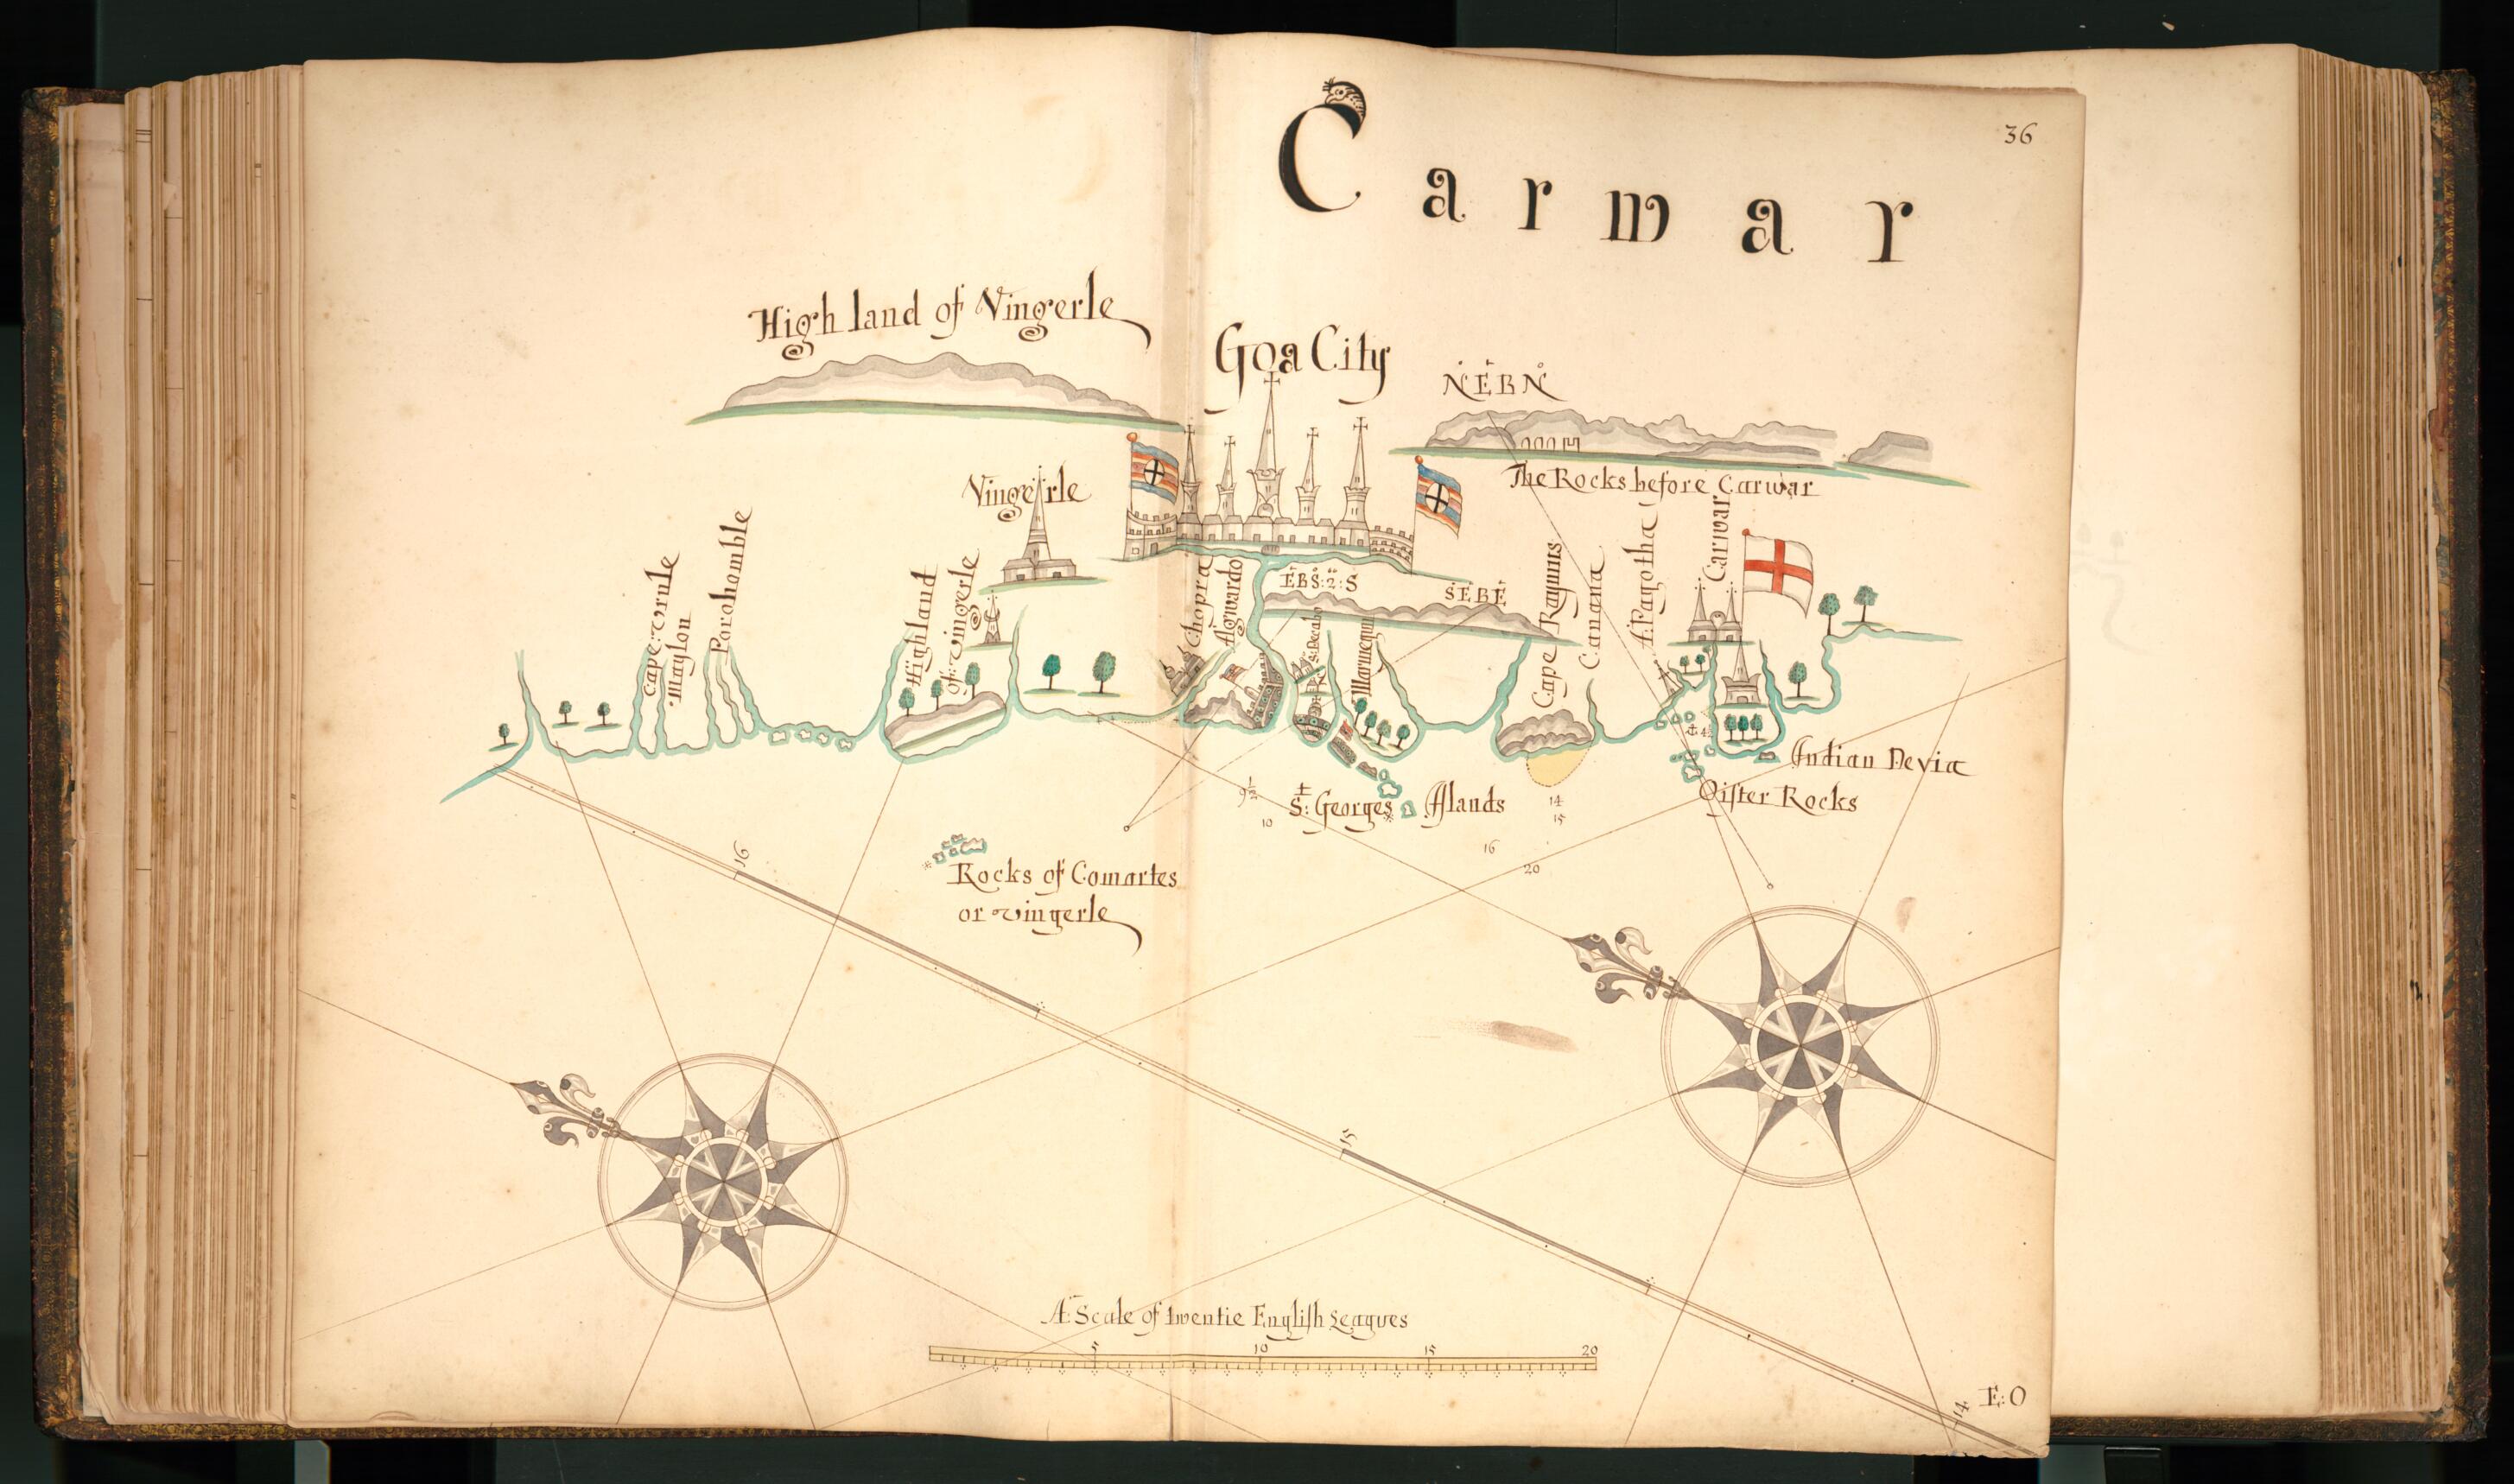 36
Carwar
High land of Vingerle
Goa City
N E B N
The Rocks before Carwar
Vingerle
Cape: Vrule
Maylon
Porohamble
Highland
of: Vingerle
Chopra
Agwardo
E B S: 2: S
S E B E
Marmegun
Cape Ramus
Canana
A: Pagotha
Carwar
4½
Indian Devia
Oister Rocks
S: Georges Ilands
9½
10
14
15
16
20
Rocks of Comartes
or vingerle
16
15
14
A Scale of twentie English Leagues
5 10 15 20
E: O